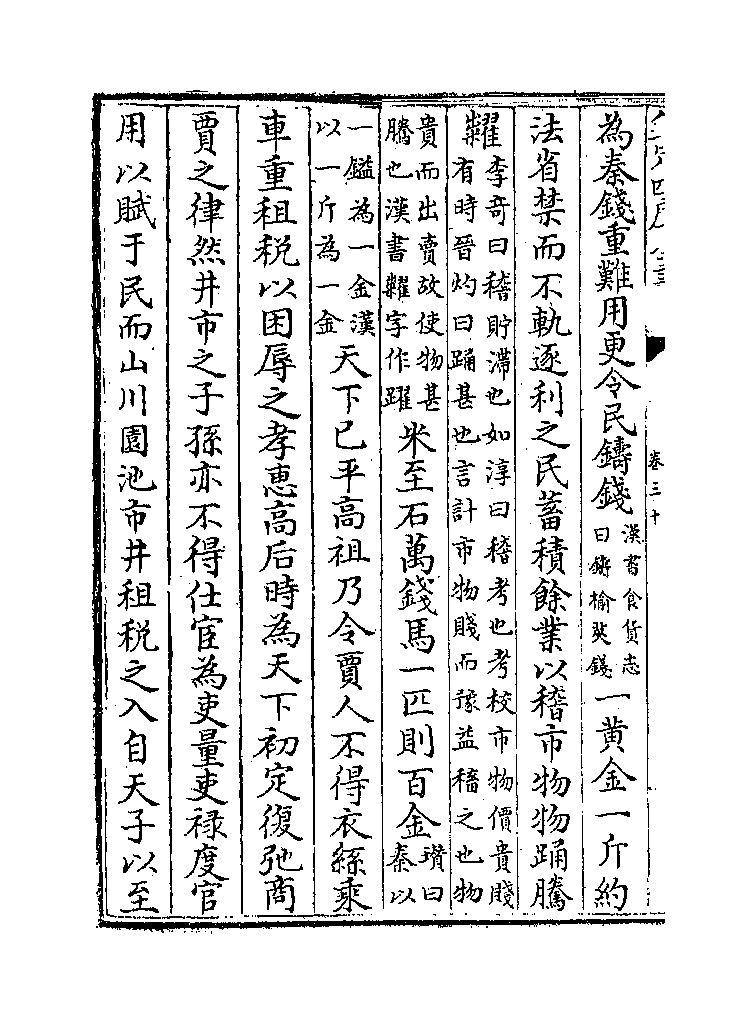 卷三十
為秦錢重難用更令民鑄錢漢書食貨志曰鑄榆莢錢一黄金一斤約
法省禁而不軌逐利之民蓄積餘業以稽市物物踊騰
糶李竒曰稽貯滯也如淳曰稽考也考校市物價貴賤有時晉灼曰踊甚也言計市物賤而豫益稽之也物
貴而出賣故使物甚騰也漢書糶字作躍米至石萬錢馬一匹則百金瓚曰秦以
一鎰為一金漢以一斤為一金天下已平高祖乃令賈人不得衣絲乘
車重租税以困辱之孝惠高后時為天下初定復弛商
賈之律然井市之子孫亦不得仕宦為吏量吏禄度官
用以賦于民而山川園池市井租税之入自天子以至